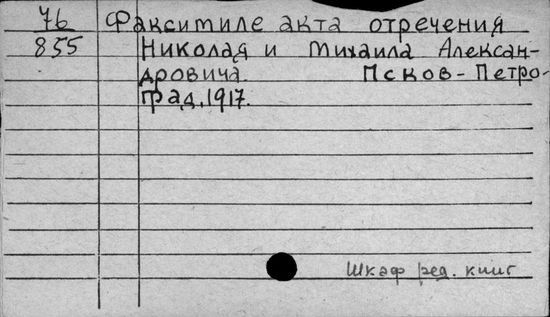 76 Факситиле акта отречения
855 Николая и Михаила Алексан-
дровича Псков-Петро-
град, 1917.
Шкаф ред. книг